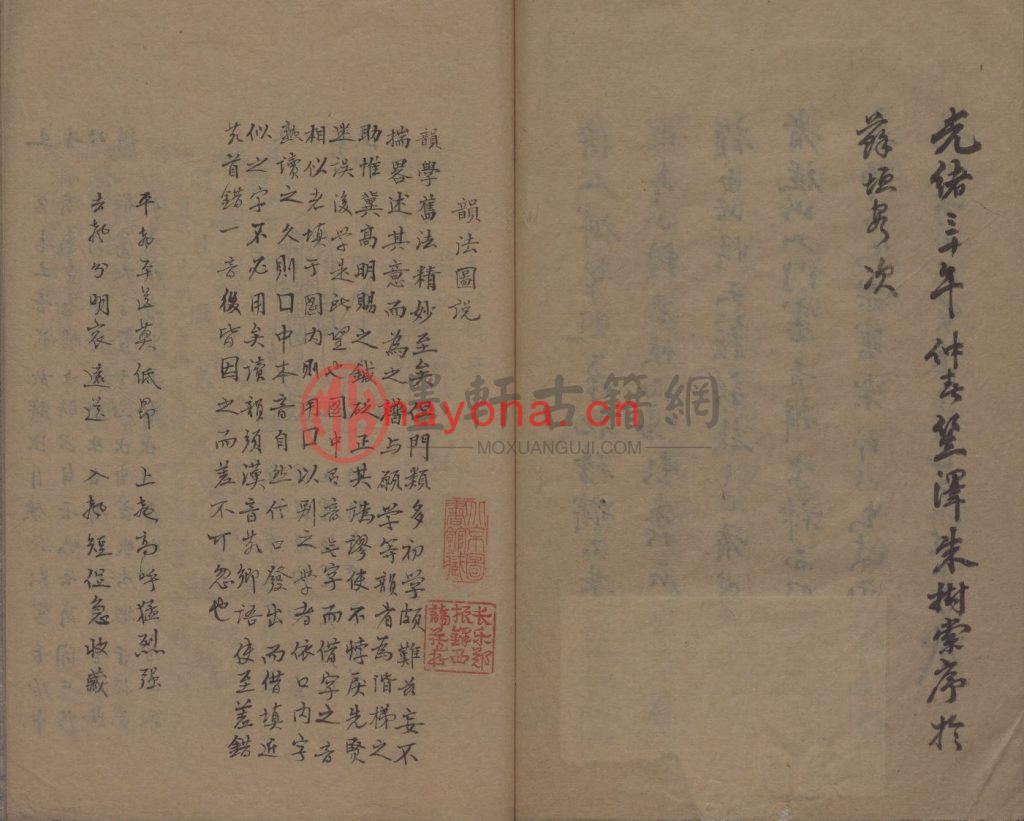 光緒三年仲春望澤朱樹棠序於
蘇垣客次
韻法圖說
韻學舊法精妙至矣但門類多初學頗難茲妄不
揣畧述其意而為之譜与願學等韻者為階梯之
助惟冀高明賜之鍼砭正其譌謬使不悖戾先賢
迷誤後學是所望也圖中有音無字而借字之音
相似者填于圖內則用口以別之學者依口內字
熟讀之久則口中本音自然信口發出而借填近
似之字不必用矣讀韻須漢音若鄉語使至差錯
先首錯一音後皆因之而差不可忽也
平聲平道莫低昂 上聲高呼猛烈强
去聲分明哀遠道 入聲短促急收藏
北京圖
書館藏
长乐郑
振鐸西
諦藏书
墨軒古籍網
nayona.cn
MOXUANGUJI.COM